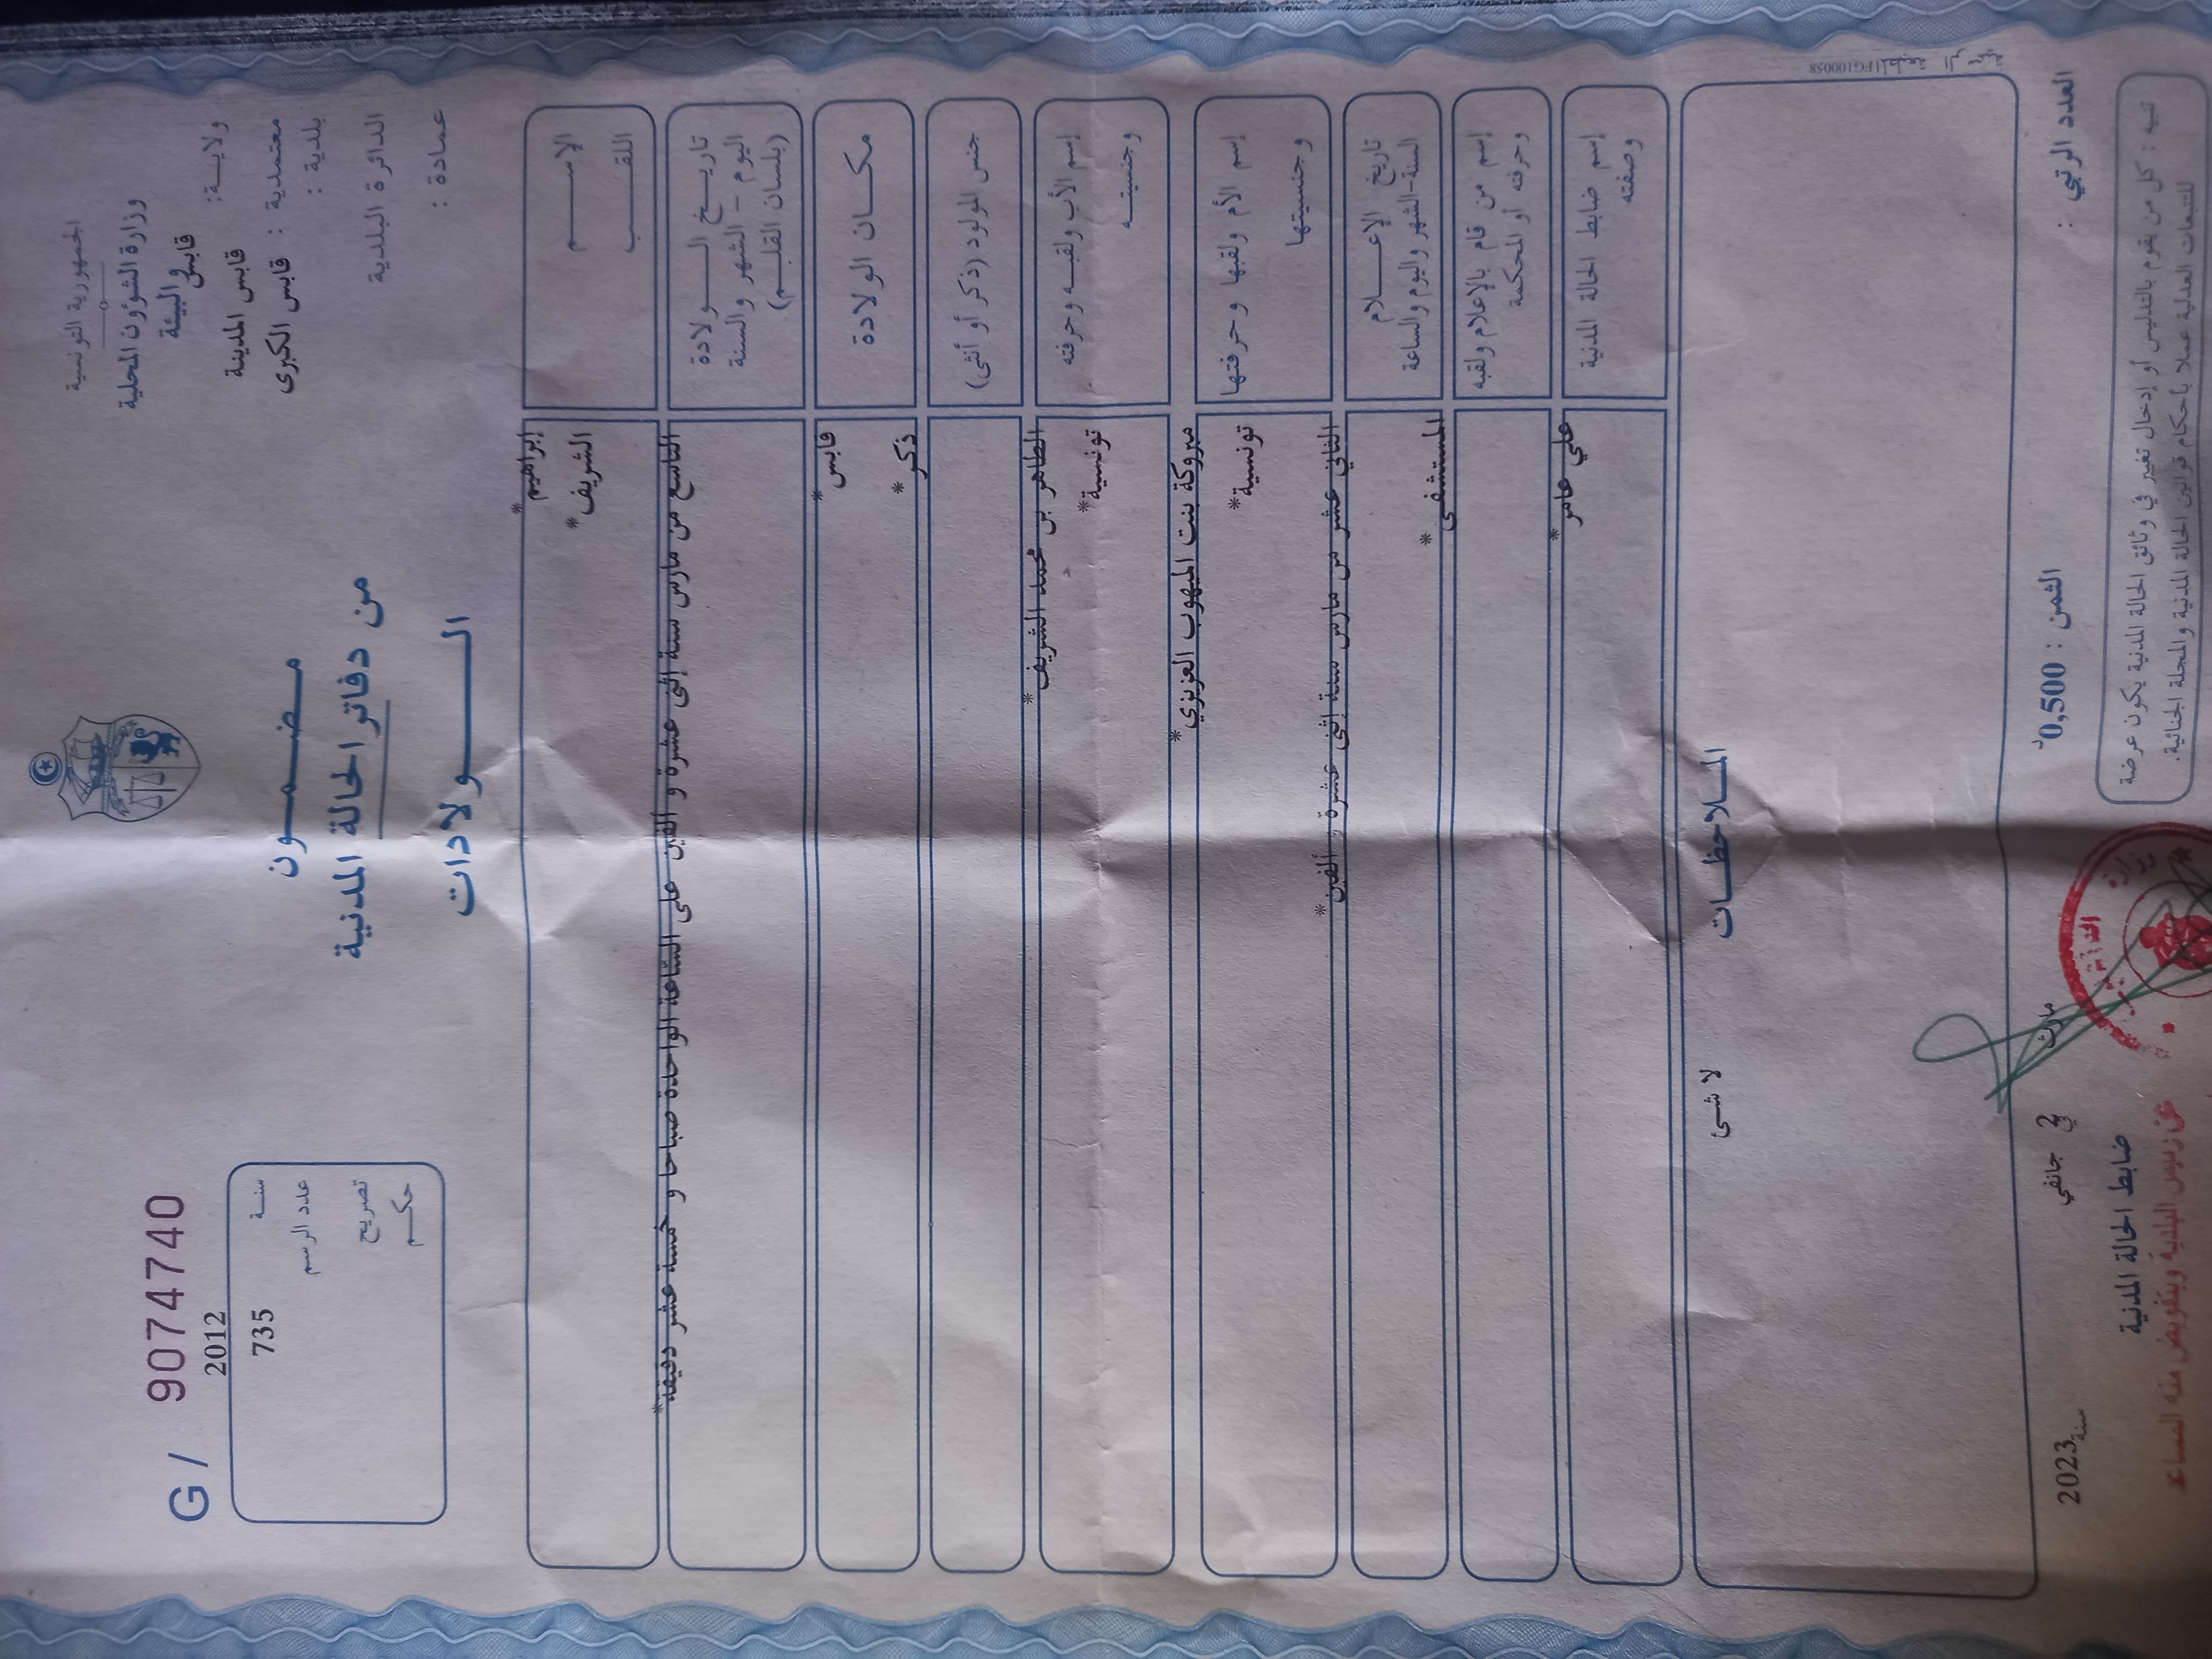 الجمهورية التونسية
وزارة الشؤون المحلية
والبيئة
ولايـة: قابس
معتمدية : قابس المدينة
بلدية : قابس الكبرى
الدائرة البلدية
عمادة :
مـضـمـــون
من دفاتر الحالة المدنية
الـــــولادات
G / 9074740
سنـة 2012
عدد الرسم 735
تصريح
حكـم
الإســـم إبراهيم*
اللقـــب الشريف*
تاريــخ الــــولادة
اليوم – الشهر والسنة
(بلسان القلـم)
التاسع من مارس سنة إثنى عشرة و ألفين على الساعة الواحدة صباحا و خمسة عشر دقيقة*
مكــان الولادة قابس*
جنس المولود (ذكر أو أنثى) ذكر*
إسم الأب ولقبـه وحرفته الطاهر بن محمد الشريف*
وجنسيتـه تونسية*
إسم الأم ولقبها وحرفتها مبروكة بنت الميهوب العزيزي*
وجنسيتها تونسية*
تاريخ الإعــلام
السنة-الشهر واليوم والساعة
الثاني عشر من مارس سنة إثنى عشرة و ألفين*
إسم من قام بالإعلام ولقبه المستشفى*
وحرفته أو المحكمة
إسم ضابط الحالة المدنية علي عامر*
وصفته
المـلاحظـات
لا شئ
المطبعة الرسمية FG100058
العدد الرتبي :
الثمن : 0,500د
مارث في 2 جانفي سنة 2023
ضابط الحالة المدنية
عن رئيس البلدية وبتفويض منه المساعد
تنبيه : كل من يقوم بالتدليس أو إدخال تغيير في وثائق الحالة المدنية يكون عرضة
للتتبعات العدلية عملا بأحكام قوانين الحالة المدنية والمجلة الجنائية.